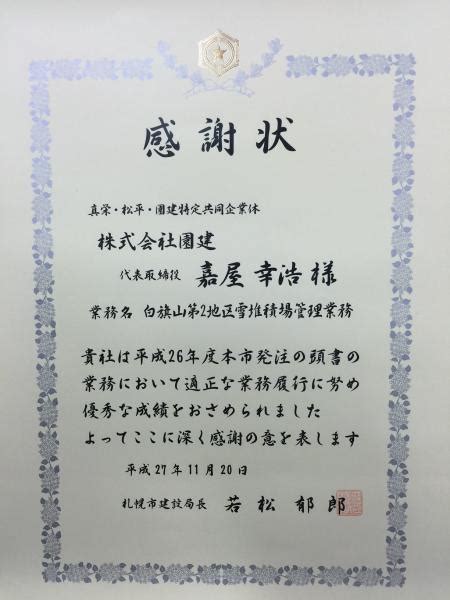 感謝状
真栄・松平・園建特定共同企業体
株式会社園建
代表取締役 嘉屋幸浩様
業務名 白旗山第2地区雪堆積場管理業務
貴社は平成26年度本市発注の頭書の
業務において適正な業務履行に努め
優秀な成績をおさめられました
よってここに深く感謝の意を表します
平成27年11月20日
札幌市建設局長 若松郁郎